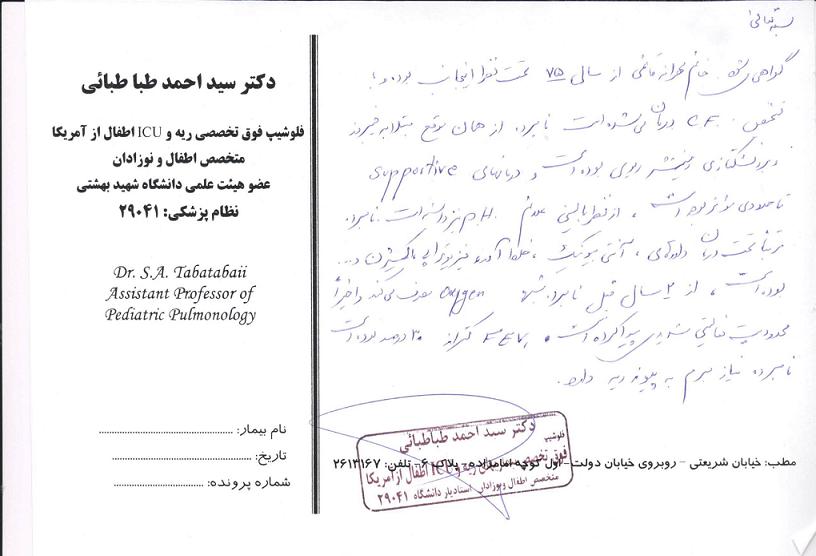 بسمه تعالی
گواهی می‌شود خانم مهرانه قاضی از سال ۷۵ تحت نظر اینجانب بوده و با
تشخیص CF. درمان می‌شده است نامبرده از همان موقع مبتلا به فیبروز
و برونشکتازی منتشر ریوی بوده است و درمانهای supportive
تا حدودی مؤثر بوده است، از نظر بالینی علائم P.H. نیز داشته است. نامبرده
مرتباً تحت درمان داروهای، آنتی بیوتیک، خلط آور، فیزیوتراپی، اکسیژن و...
بوده است، از ۲ سال قبل نامبرده oxygen مصرف می‌کند و اخیراً
محدودیت فعالیتی شدیدی پیدا کرده است. FEV1 کمتر از ۳۰ درصد بوده است
نامبرده نیاز مبرم به پیوند ریه دارد.
دکتر سید احمد طبا طبائی
فلوشیپ فوق تخصصی ریه و ICU اطفال از آمریکا
متخصص اطفال و نوزادان
عضو هیئت علمی دانشگاه شهید بهشتی
نظام پزشکی: ۲۹۰۴۱
Dr. S.A. Tabatabaii
Assistant Professor of
Pediatric Pulmonology
نام بیمار:
تاریخ:
شماره پرونده:
دکتر سید احمد طباطبائی
فلوشیپ
فوق تخصصی ریه و ICU اطفال از آمریکا
متخصص اطفال و نوزادان استادیار دانشگاه
۲۹۰۴۱
مطب: خیابان شریعتی - روبروی خیابان دولت - اول کوچه امامزاده - پلاک ۶ - تلفن: ۲۶۱۳۱۶۷